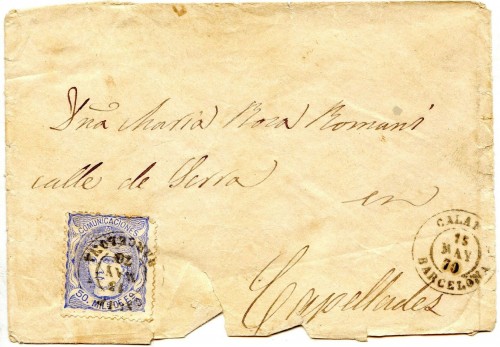 Dña Maria Rosa Romaní
calle de Serra
en
Capellades
COMUNICACIONES
50 MILS. DE E.
CALAF
15
MAY
70
BARCELONA